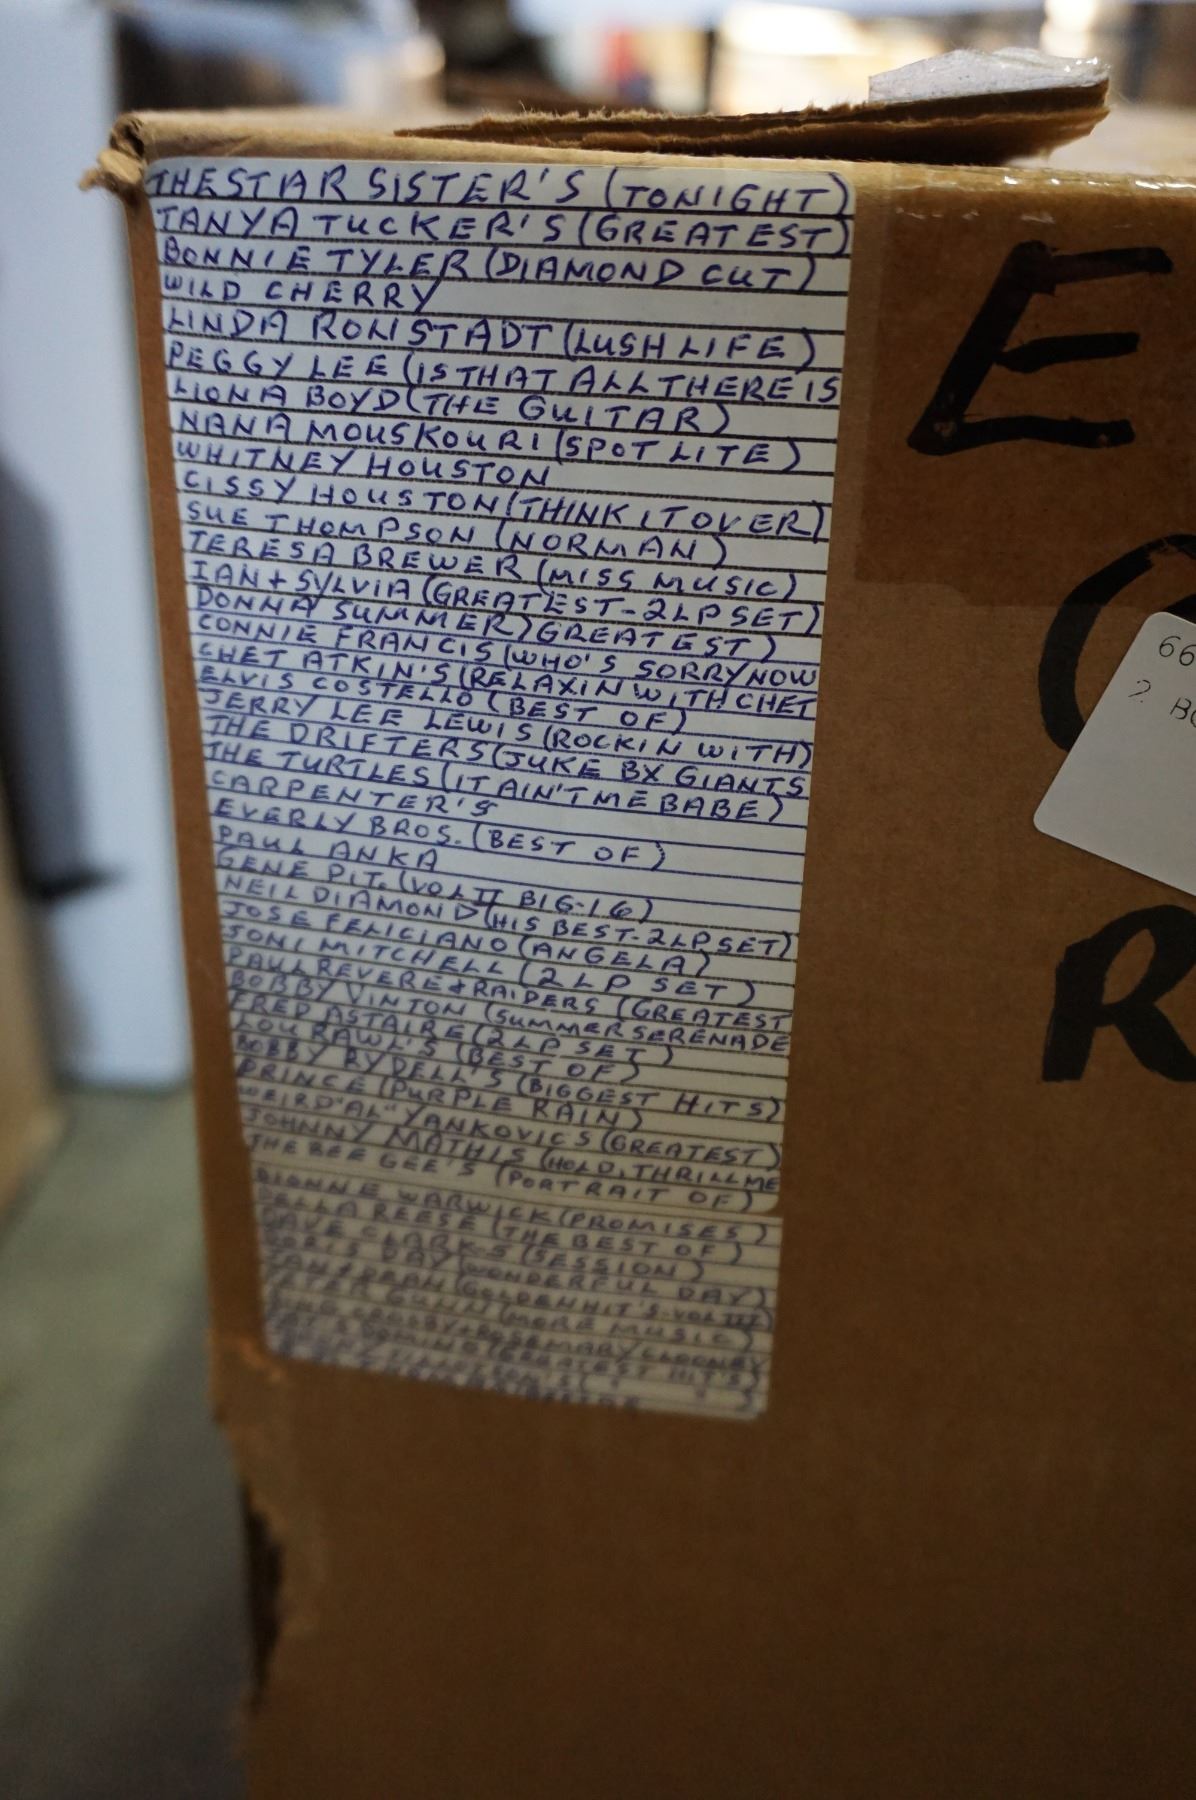 THE STAR SISTER'S (TONIGHT)
TANYA TUCKER'S (GREATEST)
BONNIE TYLER (DIAMOND CUT)
WILD CHERRY
LINDA RONSTADT (LUSH LIFE)
PEGGY LEE (IS THAT ALL THERE IS
LIONA BOYD (THE GUITAR)
NANA MOUSKOURI (SPOT LITE)
WHITNEY HOUSTON
CISSY HOUSTON (THINK IT OVER)
SUE THOMPSON (NORMAN)
TERESA BREWER (MISS MUSIC)
IAN + SYLVIA (GREATEST-2LP SET)
DONNA SUMMER) GREATEST)
CONNIE FRANCIS (WHO'S SORRY NOW
CHET ATKIN'S (RELAXIN WITH CHET
ELVIS COSTELLO (BEST OF)
JERRY LEE LEWIS (ROCKIN WITH)
THE DRIFTERS (JUKE BX GIANTS
THE TURTLES (IT AIN'T ME BABE)
CARPENTER'S
EVERLY BROS. (BEST OF)
PAUL ANKA
GENE PIT. (VOL II BIG-16)
NEIL DIAMOND (HIS BEST-2LP SET)
JOSE FELICIANO (ANGELA)
JONI MITCHELL (2LP SET)
PAUL REVERE & RAIDERS (GREATEST
BOBBY VINTON (SUMMER SERENADE
FRED ASTAIRE (2LP SET)
LOU RAWL'S (BEST OF)
BOBBY RYDELL'S (BIGGEST HITS)
PRINCE (PURPLE RAIN)
WEIRD "AL" YANKOVICS (GREATEST)
JOHNNY MATHIS (HOLD, THRILL ME
THE BEE GEE'S (PORTRAIT OF)
DIONNE WARWICK (PROMISES)
DELLA REESE (THE BEST OF)
DAVE CLARK-5 (SESSION)
DORIS DAY (WONDERFUL DAY)
JAN & DEAN (GOLDEN HIT'S-VOL III)
PETER GUNN (MORE MUSIC)
BING CROSBY + ROSEMARY CLOONEY
FATS DOMINO (GREATEST HIT'S)
E
R
66
2 BO